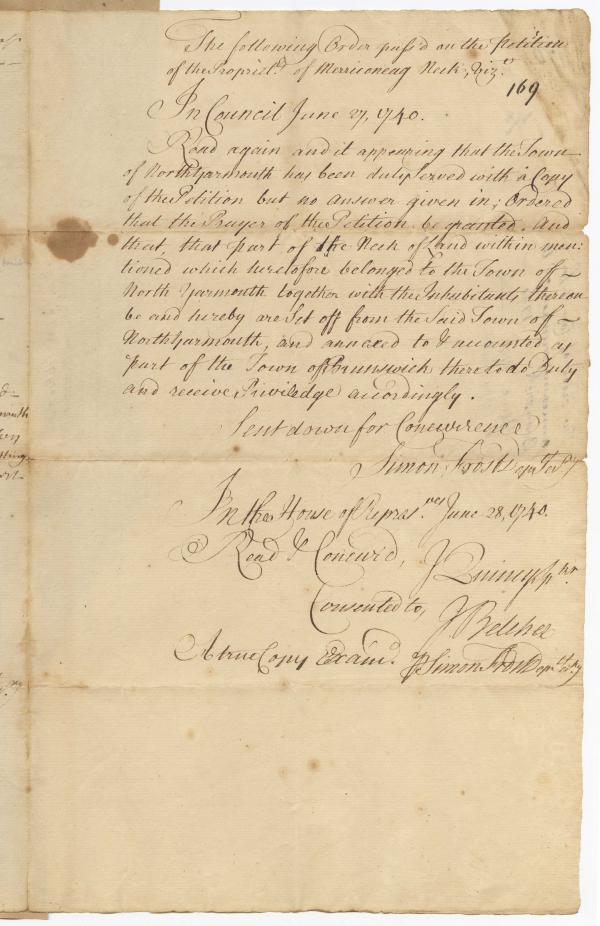 The following Order pass'd on the Petition
of the Propriet.rs of Merriconeag Neck, Viz.t
169
In Council June 27, 1740.
Read again and it appearing that the Town
of North Yarmouth has been duly Served with a Copy
of the Petition but no answer given in; Ordered
that the Prayer of the Petition be granted. And
that, that part of the Neck of Land within men:
tioned which heretofore belonged to the Town of
North Yarmouth together with the Inhabitants thereon
be and hereby are Set off from the Said Town of
North Yarmouth, and annexed to & accounted as
part of the Town of Brunswick there to do Duty
and receive Priviledge accordingly.
Sent down for Concurrence
Simon Frost Dep.ty Sec.ry
In the House of Repres.ves June 28, 1740.
Read & Concur'd,
J Quincy Spkr.
Consented to,
J Belcher
A true Copy Exam'd.
p Simon Frost Dep.ty Sec.ry